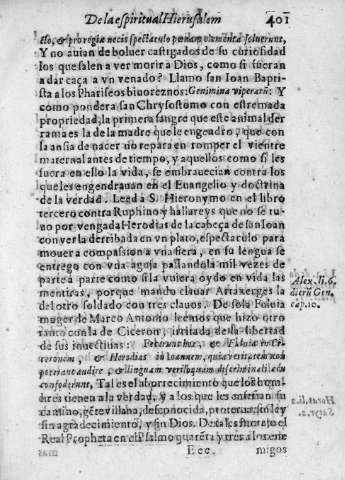 De la espiritual Hierusalem 401
sto, & pro regiæ necis spectaculo pœnam vehementer soluerunt,
Y no auian de boluer castigados de su curiosidad
los que salen a ver morir a Dios, como si fueran
a dar caça a vn venado? Llamo san Ioan Baptis-
ta a los Phariseos biuoreznos: Genimina viperarũ: Y
como pondera san Chrysostomo con estremada
propriedad, la primera sangre que este animal der
rama es la de la madre que le engendro, que con
la ansia de nacer no repara en romper el vientre
maternal antes de tiempo, y aquellos como si les
fuera en ello la vida, se embrauecian contra los
que les engendrauan en el Euangelio y doctrina
de la verdad. Leed a S. Hieronymo en el libro
tercero contra Ruphino y hallareys que no se tu-
uo por vengada Herodias de la cabeça de san Ioan
con verla derribada en vn plato, espectaculo para
mouer a compassion a vna fiera, en su lengua se
entrego con vna aguja passandola mil vezes de
parte a parte como si la vuiera oydo en vida las
mentiras, porque mancho clauar Artaxerges la
del otro soldado con tres clauos. De sola Fuluia
muger de Marco Antonio leemos que hizo otro
tanto con la de Ciceron, irritada de la libertad
de sus inuectiuas: Fecerunt hoc, & Fuluia in Ci-
ceronem, & Herodias in Ioannem, quia veritatem non
poterant audire, & linguam veriloquam discriminali acu
confoderunt, Tal es el aborrecimiento que los hom-
bres tienen a la verdad, y a los que les enseñan su
camino, gẽte villana, desconocida, proterua, sin ley
sin agradecimiento, y sin Dios. Destas se quexo el
Real Propheta en el Psalmo quarẽta y tres a los ene
Eee. migos
Alex. li. 6,
dierũ Gen,
cap. 10.
Horat. li. 2
Satyr. 2.